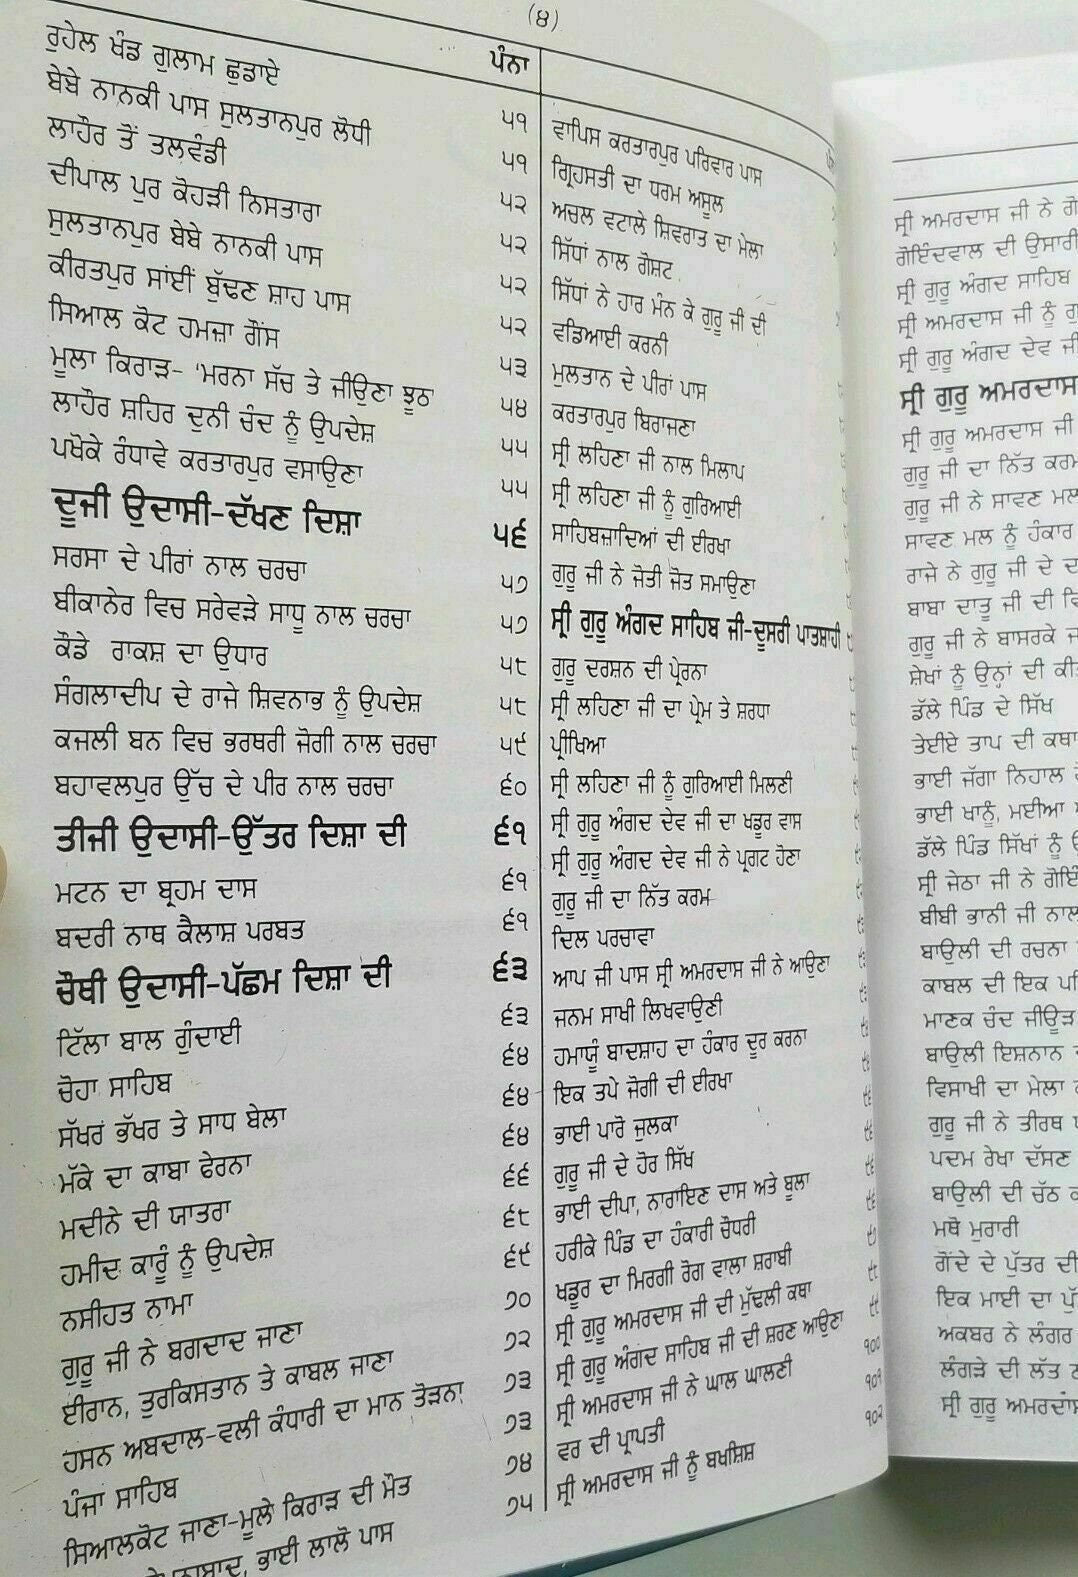 (੪)
ਪੰਨਾ
ਰੁਹੇਲ ਖੰਡ ਗੁਲਾਮ ਛੁਡਾਏ ੫੧
ਬੇਬੇ ਨਾਨਕੀ ਪਾਸ ਸੁਲਤਾਨਪੁਰ ਲੋਧੀ ੫੧
ਲਾਹੌਰ ਤੋਂ ਤਲਵੰਡੀ ੫੨
ਦੀਪਾਲ ਪੁਰ ਕੋਹੜੀ ਨਿਸਤਾਰਾ ੫੨
ਸੁਲਤਾਨਪੁਰ ਬੇਬੇ ਨਾਨਕੀ ਪਾਸ ੫੨
ਕੀਰਤਪੁਰ ਸਾਂਈਂ ਬੁੱਢਣ ਸ਼ਾਹ ਪਾਸ ੫੨
ਸਿਆਲ ਕੋਟ ਹਮਜ਼ਾ ਗੌਂਸ ੫੩
ਮੂਲਾ ਕਿਰਾੜ- 'ਮਰਨਾ ਸੱਚ ਤੇ ਜੀਉਣਾ ਝੂਠਾ ੫੪
ਲਾਹੌਰ ਸ਼ਹਿਰ ਦੁਨੀ ਚੰਦ ਨੂੰ ਉਪਦੇਸ਼ ੫੫
ਪਖੋਕੇ ਰੰਧਾਵੇ ਕਰਤਾਰਪੁਰ ਵਸਾਉਣਾ ੫੫
ਦੂਜੀ ਉਦਾਸੀ-ਦੱਖਣ ਦਿਸ਼ਾ ੫੬
ਸਰਸਾ ਦੇ ਪੀਰਾਂ ਨਾਲ ਚਰਚਾ ੫੭
ਬੀਕਾਨੇਰ ਵਿਚ ਸਰੇਵੜੇ ਸਾਧੂ ਨਾਲ ਚਰਚਾ ੫੭
ਕੌਡੇ ਰਾਕਸ਼ ਦਾ ਉਧਾਰ ੫੮
ਸੰਗਲਾਦੀਪ ਦੇ ਰਾਜੇ ਸ਼ਿਵਨਾਭ ਨੂੰ ਉਪਦੇਸ਼ ੫੮
ਕਜਲੀ ਬਨ ਵਿਚ ਭਰਥਰੀ ਜੋਗੀ ਨਾਲ ਚਰਚਾ ੫੯
ਬਹਾਵਲਪੁਰ ਉੱਚ ਦੇ ਪੀਰ ਨਾਲ ਚਰਚਾ ੬੦
ਤੀਜੀ ਉਦਾਸੀ-ਉੱਤਰ ਦਿਸ਼ਾ ਦੀ ੬੧
ਮਟਨ ਦਾ ਬ੍ਰਹਮ ਦਾਸ ੬੧
ਬਦਰੀ ਨਾਥ ਕੈਲਾਸ਼ ਪਰਬਤ ੬੧
ਚੌਥੀ ਉਦਾਸੀ-ਪੱਛਮ ਦਿਸ਼ਾ ਦੀ ੬੩
ਟਿੱਲਾ ਬਾਲ ਗੁੰਦਾਈ ੬੩
ਚੋਹਾ ਸਾਹਿਬ ੬੪
ਸੱਖਰ ਭੱਖਰ ਤੇ ਸਾਧ ਬੇਲਾ ੬੪
ਮੱਕੇ ਦਾ ਕਾਬਾ ਫੇਰਨਾ ੬੪
ਮਦੀਨੇ ਦੀ ਯਾਤਰਾ ੬੬
ਹਮੀਦ ਕਾਰੂੰ ਨੂੰ ਉਪਦੇਸ਼ ੬੮
ਨਸੀਹਤ ਨਾਮਾ ੬੯
ਗੁਰੂ ਜੀ ਨੇ ਬਗਦਾਦ ਜਾਣਾ ੭੦
ਈਰਾਨ, ਤੁਰਕਿਸਤਾਨ ਤੇ ਕਾਬਲ ਜਾਣਾ ੭੨
ਹਸਨ ਅਬਦਾਲ-ਵਲੀ ਕੰਧਾਰੀ ਦਾ ਮਾਨ ਤੋੜਨਾ ੭੩
ਪੰਜਾਂ ਸਾਹਿਬ ੭੩
ਸਿਆਲਕੋਟ ਜਾਣਾ-ਮੂਲੇ ਕਿਰਾੜ ਦੀ ਮੌਤ ੭੪
ਭਾਈ ਲਾਲੋ ਪਾਸ ੭੫
ਵਾਪਿਸ ਕਰਤਾਰਪੁਰ ਪਰਿਵਾਰ ਪਾਸ
ਗ੍ਰਿਹਸਤੀ ਦਾ ਧਰਮ ਅਸੂਲ
ਅਚਲ ਵਟਾਲੇ ਸ਼ਿਵਰਾਤ ਦਾ ਮੇਲਾ
ਸਿੱਧਾਂ ਨਾਲ ਗੋਸ਼ਟ
ਸਿੱਧਾਂ ਨੇ ਹਾਰ ਮੰਨ ਕੇ ਗੁਰੂ ਜੀ ਦੀ
ਵਡਿਆਈ ਕਰਨੀ
ਮੁਲਤਾਨ ਦੇ ਪੀਰਾਂ ਪਾਸ
ਕਰਤਾਰਪੁਰ ਬਿਰਾਜਣਾ
ਸ੍ਰੀ ਲਹਿਣਾ ਜੀ ਨਾਲ ਮਿਲਾਪ
ਸ੍ਰੀ ਲਹਿਣਾ ਜੀ ਨੂੰ ਗੁਰਿਆਈ
ਸਾਹਿਬਜ਼ਾਦਿਆਂ ਦੀ ਈਰਖਾ
ਗੁਰੂ ਜੀ ਨੇ ਜੋਤੀ ਜੋਤ ਸਮਾਉਣਾ
ਸ੍ਰੀ ਗੁਰੂ ਅੰਗਦ ਸਾਹਿਬ ਜੀ-ਦੂਸਰੀ ਪਾਤਸ਼ਾਹੀ
ਗੁਰੂ ਦਰਸ਼ਨ ਦੀ ਪ੍ਰੇਰਨਾ
ਸ੍ਰੀ ਲਹਿਣਾ ਜੀ ਦਾ ਪ੍ਰੇਮ ਤੇ ਸ਼ਰਧਾ
ਪ੍ਰੀਖਿਆ
ਸ੍ਰੀ ਲਹਿਣਾ ਜੀ ਨੂੰ ਗੁਰਿਆਈ ਮਿਲਣੀ
ਸ੍ਰੀ ਗੁਰੂ ਅੰਗਦ ਦੇਵ ਜੀ ਦਾ ਖਡੂਰ ਵਾਸ
ਸ੍ਰੀ ਗੁਰੂ ਅੰਗਦ ਦੇਵ ਜੀ ਨੇ ਪ੍ਰਗਟ ਹੋਣਾ
ਗੁਰੂ ਜੀ ਦਾ ਨਿੱਤ ਕਰਮ
ਦਿਲ ਪਰਚਾਵਾ
ਆਪ ਜੀ ਪਾਸ ਸ੍ਰੀ ਅਮਰਦਾਸ ਜੀ ਨੇ ਆਉਣਾ
ਜਨਮ ਸਾਖੀ ਲਿਖਵਾਉਣੀ
ਹਮਾਯੂੰ ਬਾਦਸ਼ਾਹ ਦਾ ਹੰਕਾਰ ਦੂਰ ਕਰਨਾ
ਇਕ ਤਪੇ ਜੋਗੀ ਦੀ ਈਰਖਾ
ਭਾਈ ਪਾਰੋ ਜੁਲਕਾ
ਗੁਰੂ ਜੀ ਦੇ ਹੋਰ ਸਿੱਖ
ਭਾਈ ਦੀਪਾ, ਨਾਰਾਇਣ ਦਾਸ ਅਤੇ ਬੂਲਾ
ਹਰੀਕੇ ਪਿੰਡ ਦਾ ਹੰਕਾਰੀ ਚੌਧਰੀ
ਖਡੂਰ ਦਾ ਮਿਰਗੀ ਰੋਗ ਵਾਲਾ ਸ਼ਰਾਬੀ
ਸ੍ਰੀ ਗੁਰੂ ਅਮਰਦਾਸ ਜੀ ਦੀ ਮੁੱਢਲੀ ਕਥਾ
ਸ੍ਰੀ ਗੁਰੂ ਅੰਗਦ ਸਾਹਿਬ ਜੀ ਦੀ ਸ਼ਰਣ ਆਉਣਾ
ਸ੍ਰੀ ਅਮਰਦਾਸ ਜੀ ਨੇ ਘਾਲ ਘਾਲਣੀ ੧੦੦
ਵਰ ਦੀ ਪ੍ਰਾਪਤੀ ੧੦੧
ਸ੍ਰੀ ਅਮਰਦਾਸ ਜੀ ਨੂੰ ਬਖਸ਼ਿਸ਼ ੧੦੨
ਸ੍ਰੀ ਅਮਰਦਾਸ ਜੀ ਨੇ
ਗੋਇੰਦਵਾਲ ਦੀ ਉਸਾਰੀ
ਸ੍ਰੀ ਗੁਰੂ ਅੰਗਦ ਸਾਹਿਬ
ਸ੍ਰੀ ਅਮਰਦਾਸ ਜੀ ਨੂੰ
ਸ੍ਰੀ ਗੁਰੂ ਅੰਗਦ ਦੇਵ ਜੀ
ਸ੍ਰੀ ਗੁਰੂ ਅਮਰਦਾਸ
ਸ੍ਰੀ ਗੁਰੂ ਅਮਰਦਾਸ ਜੀ
ਗੁਰੂ ਜੀ ਦਾ ਨਿੱਤ ਕਰਮ
ਗੁਰੂ ਜੀ ਨੇ ਸਾਵਣ ਮਲ
ਸਾਵਣ ਮਲ ਨੂੰ ਹੰਕਾਰ
ਰਾਜੇ ਨੇ ਗੁਰੂ ਜੀ ਦੇ
ਬਾਬਾ ਦਾਤੂ ਜੀ ਦੀ
ਗੁਰੂ ਜੀ ਨੇ ਬਾਸਰਕੇ
ਸ਼ੇਖਾਂ ਨੂੰ ਉਨ੍ਹਾਂ ਦੀ
ਡੱਲੇ ਪਿੰਡ ਦੇ ਸਿੱਖ
ਤੇਈਏ ਤਾਪ ਦੀ ਕਥਾ
ਭਾਈ ਜੱਗਾ ਨਿਹਾਲ
ਭਾਈ ਖਾਨੂੰ, ਮਈਆ
ਡੱਲੇ ਪਿੰਡ ਸਿੱਖਾਂ ਨੂੰ
ਸ੍ਰੀ ਜੇਠਾ ਜੀ ਨੇ
ਬੀਬੀ ਭਾਨੀ ਜੀ ਨਾਲ
ਬਾਉਲੀ ਦੀ ਰਚਨਾ
ਕਾਬਲ ਦੀ ਇਕ
ਮਾਣਕ ਚੰਦ ਜੀਊੜ
ਬਾਉਲੀ ਇਸ਼ਨਾਨ
ਵਿਸਾਖੀ ਦਾ ਮੇਲਾ
ਗੁਰੂ ਜੀ ਨੇ ਤੀਰਥ
ਪਦਮ ਰੇਖਾ ਦੱਸਣ
ਬਾਉਲੀ ਦੀ ਚੱਠ
ਮਥੋ ਮੁਰਾਰੀ
ਗੋਂਦੇ ਦੇ ਪੁੱਤਰ ਦੀ
ਇਕ ਮਾਈ ਦਾ
ਅਕਬਰ ਨੇ ਲੰਗਰ
ਲੰਗੜੇ ਦੀ ਲੱਤ
ਸ੍ਰੀ ਗੁਰੂ ਅਮਰਦਾਸ